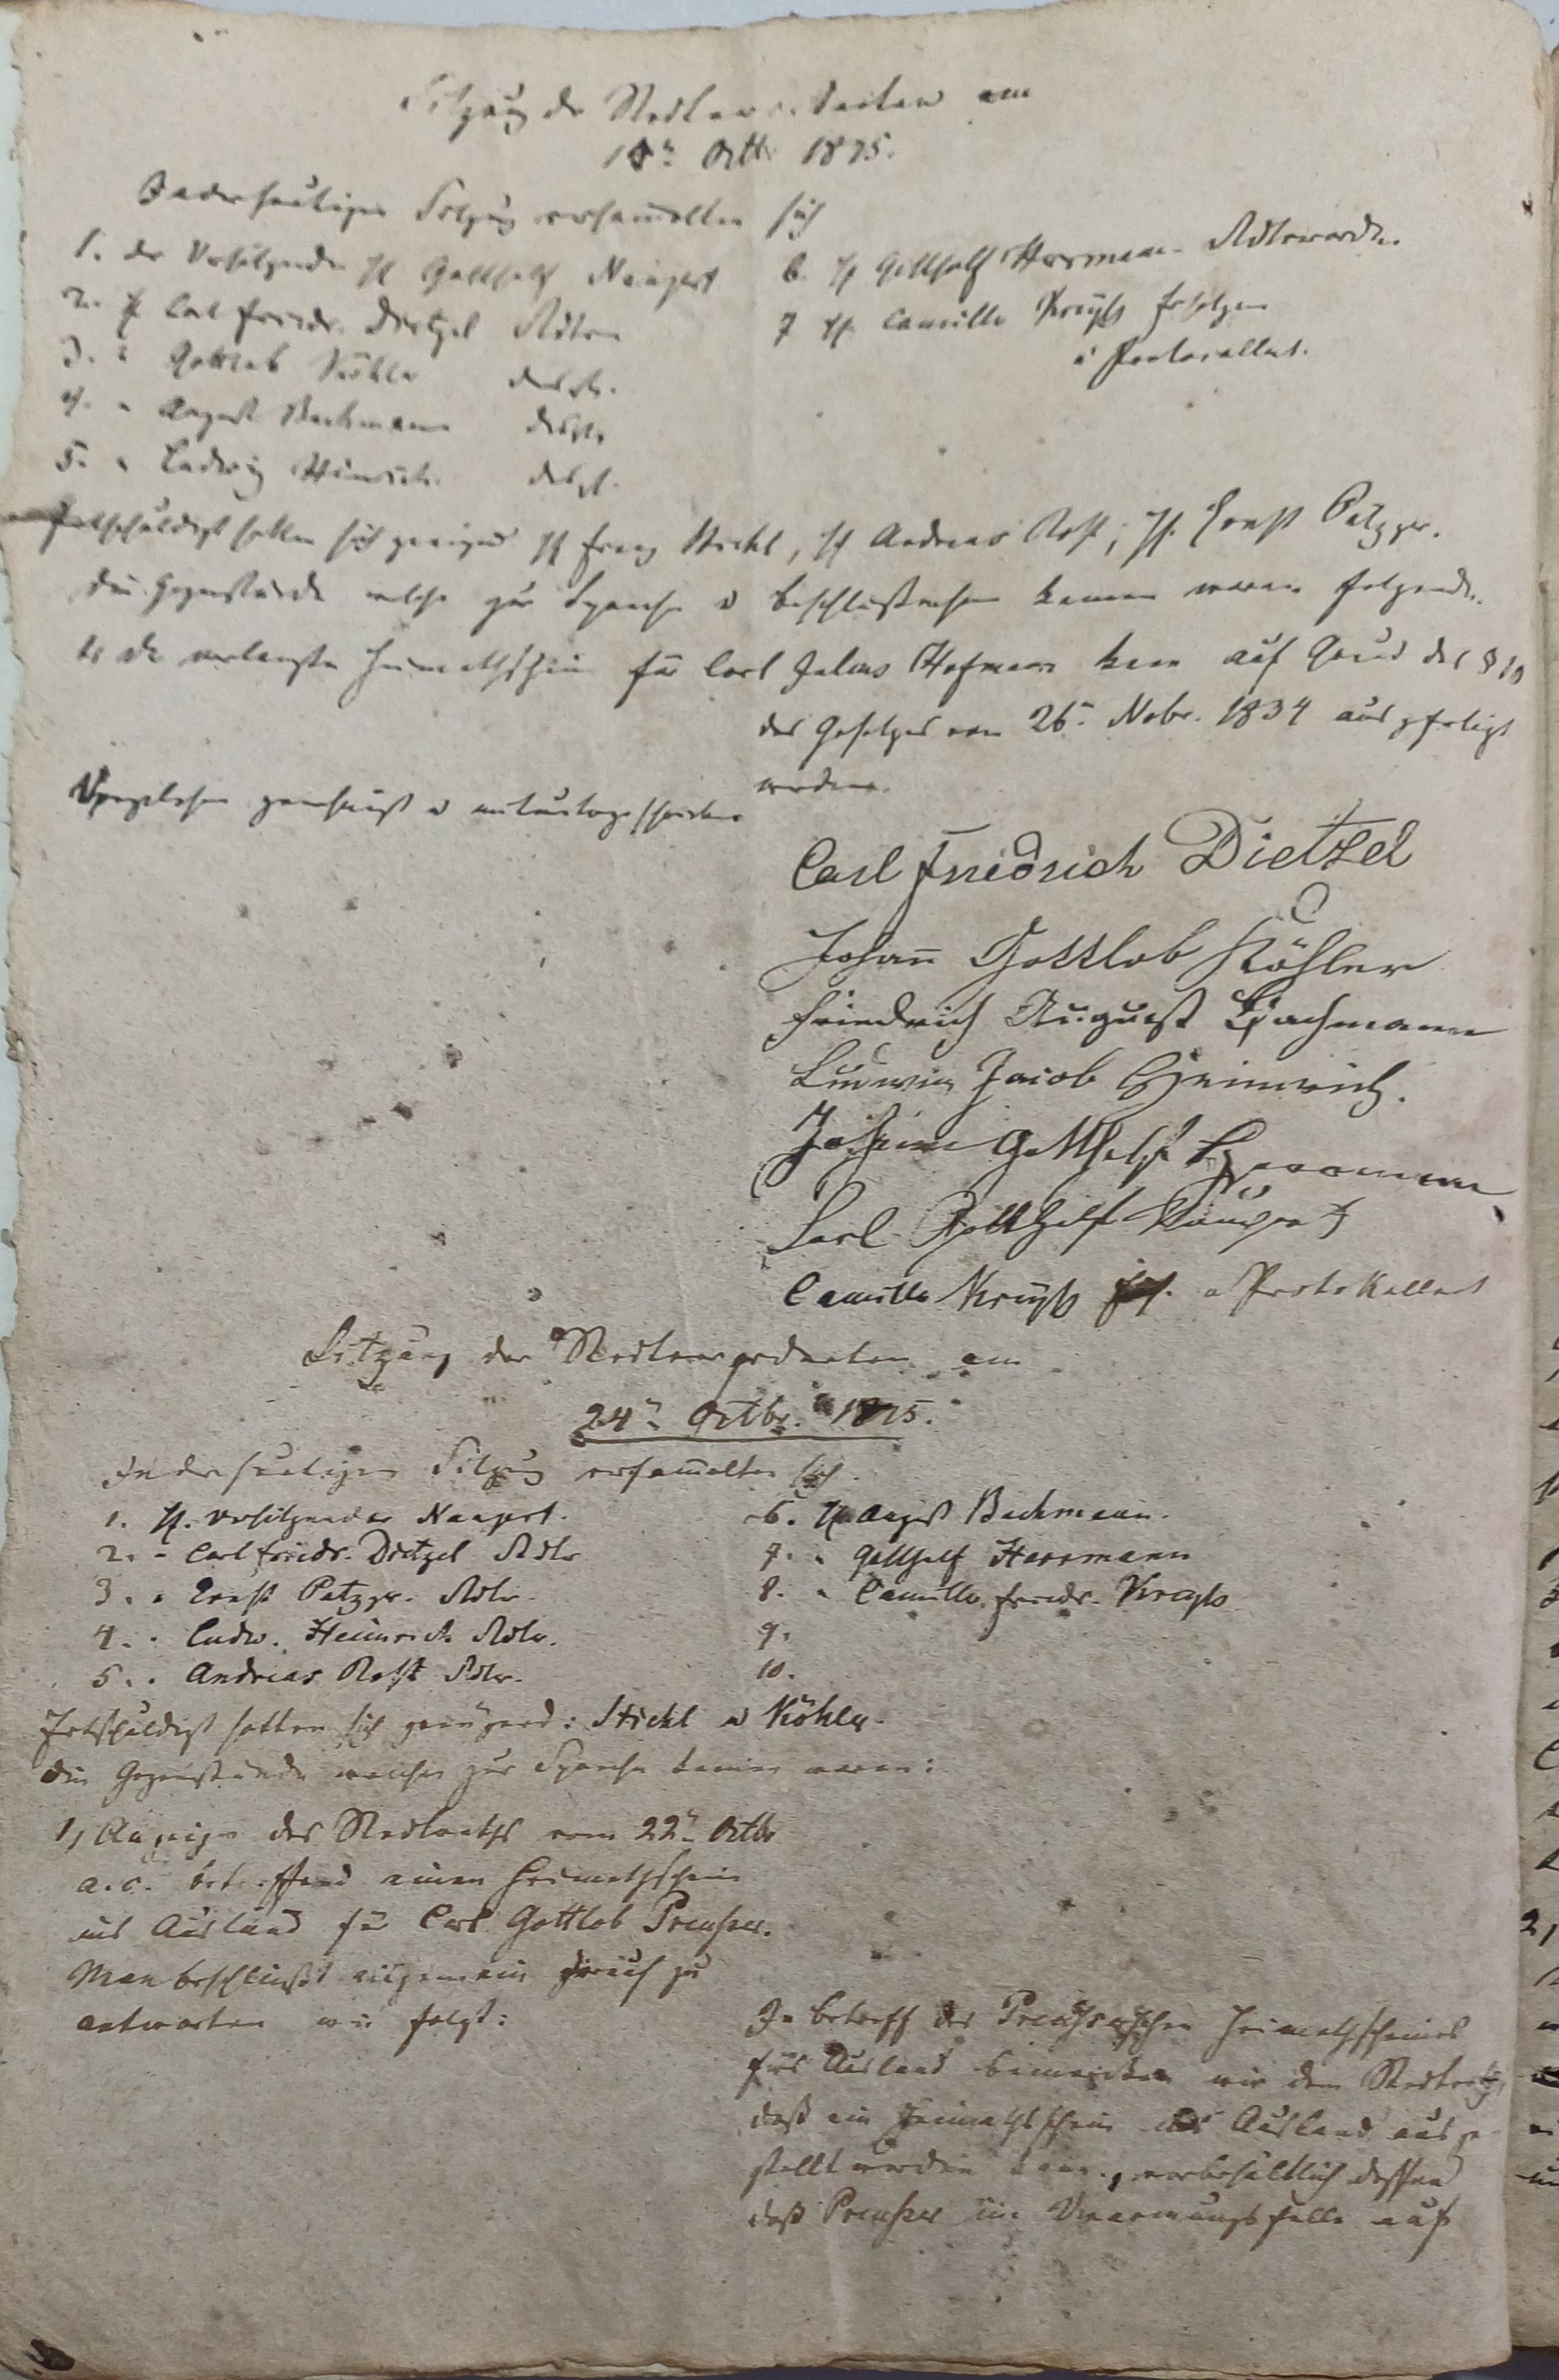 Sitzung der Stadtverordneten am
18n Octb. 1875.
In der heutigen Sitzung versam̄elten sich
1. der Vorsitzende H Gotthelf Naupert
2. H Carl Friedr. Dietzel Stdtv
3. " Gottlob Köhler desgl.
4. " August Bachmann desgl.
5. " Ludwig Heinrich desgl.
6. H Gotthelf Herrmann Stdtverord.
7 H. Camillo Kreyß
a Protocollant.
Entschuldigt hatten sich H Franz Stickl, H Andreas Rost, H. Ernst Patzger.
Die Gegenstände welche zur Sprache u Beschlußnahme kamen waren folgende.
1, der verlangte Heimathschein für Carl Julius Hofmann kann auf Grund des § 10
des Gesetzes vom 26n Nobr. 1834 ausgefertigt
werden.
Vorgelesen genehmigt u mitunterzeichnet
Carl Friedrich Dietzel
Johan̄ Gottlob Köhler
Friedrich August Bachmann
Ludwig Jacob Heinrich.
Johann Gotthelf Herrmann
Carl Gotthelf Naupert
Camillo Kreyß a Protokollant
Sitzung der Stadtverordneten am
24n Octbr. 1875.
In der heutigen Sitzung versam̄elten sich.
1. H. Vorsitzender Naupert.
2. - Carl Friedr. Dietzel Stdtv
3. " Ernst Patzger. Stdtv.
4. " Ludw. Heinrich Stdtv.
5. " Andreas Rost Stdtv.
6. H. August Bachmann.
7. " Gotthelf Herrmann
8. " Camillo Friedr. Kreyß
9.
10.
Entschuldigt hatten sich: Stickl u Köhler.
Die Gegenstände welche zur Sprache kamen waren:
1, Anzeige des Stadtraths vom 22n Octbr
a. c. betreffend einen Heimathschein
ins Ausland für Carl Gottlob Preußer.
Man beschließt allgemein hierauf zu
antworten wie folgt:
In Betreff des Preußerschen Heimathscheines
fürs Ausland bemerken wir dem Stadtrath,
daß ein Heimathschein ins Ausland ausge-
stellt werden kann, vorbehältlich dessen
daß Preußer im Verarmungsfalle auf